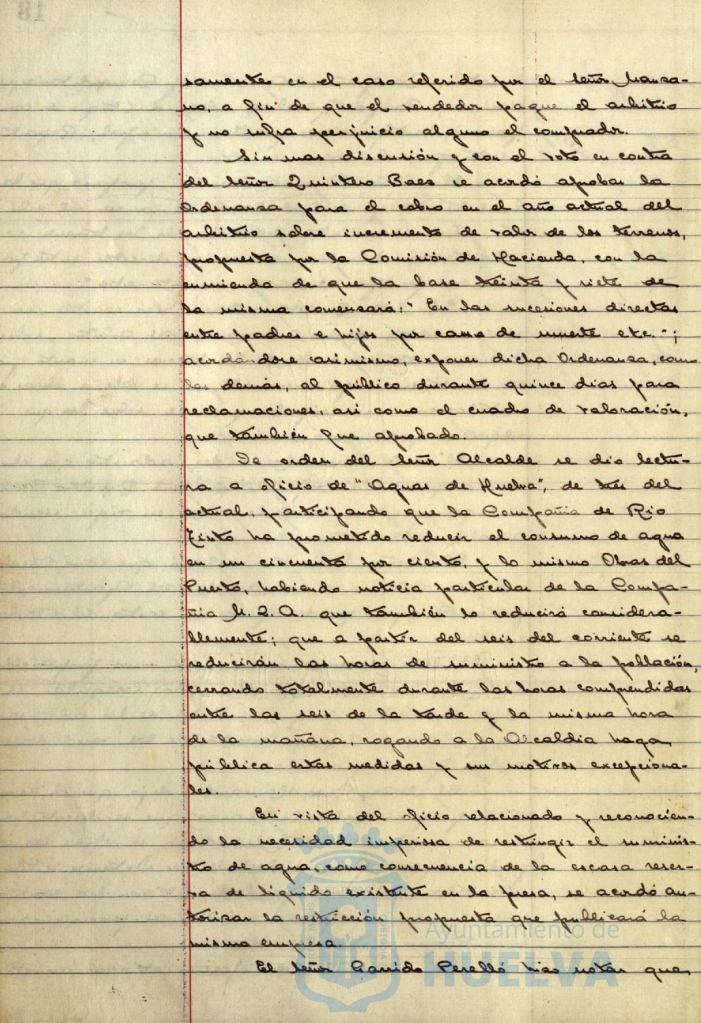 samente en el caso referido por el señor Manza-
no, a fin de que el vendedor pague el arbitrio
y no sufra perjuicio alguno el comprador.
Sin mas discusión y con el voto en contra
del señor Quintero Baez se acordó aprobar la
Ordenanza para el cobro en el año actual del
arbitrio sobre incremento de valor de los terrenos,
propuesta por la Comisión de Hacienda, con la
enmienda de que la base treinta y siete de
la misma comenzará: "En las sucesiones directas
entre padres e hijos por causa de muerte etc.";
acordándose asimismo, exponer dicha Ordenanza, como
las demás, al público durante quince dias para
reclamaciones, asi como el cuadro de valoración,
que también fue aprobado.
De orden del señor Alcalde se dio lectu-
ra a oficio de "Aguas de Huelva", de tres del
actual, participando que la Compañia de Rio
Tinto ha prometido reducir el consumo de agua
en un cincuenta por ciento, y lo mismo Obras del
Puerto, habiendo noticia particular de la Compa-
ñia M.Z.A. que también lo reducirá considera-
blemente; que a partir del seis del corriente se
reducirán las horas de suministro a la población,
cerrando totalmente durante las horas comprendidas
entre las seis de la tarde y la misma hora
de la mañana, rogando a la Alcaldia haga
pública estas medidas y sus motivos excepciona-
les.
En vista del oficio relacionado y reconocien-
do la necesidad imperiosa de restringir el suminis-
tro de agua, como consecuencia de la escasa reser-
va de líquido existente en la presa, se acordó au-
torizar la restricción propuesta que publicará la
misma empresa.
El señor Garrido Perelló hizo notar que
Ayuntamiento de
HUELVA
18